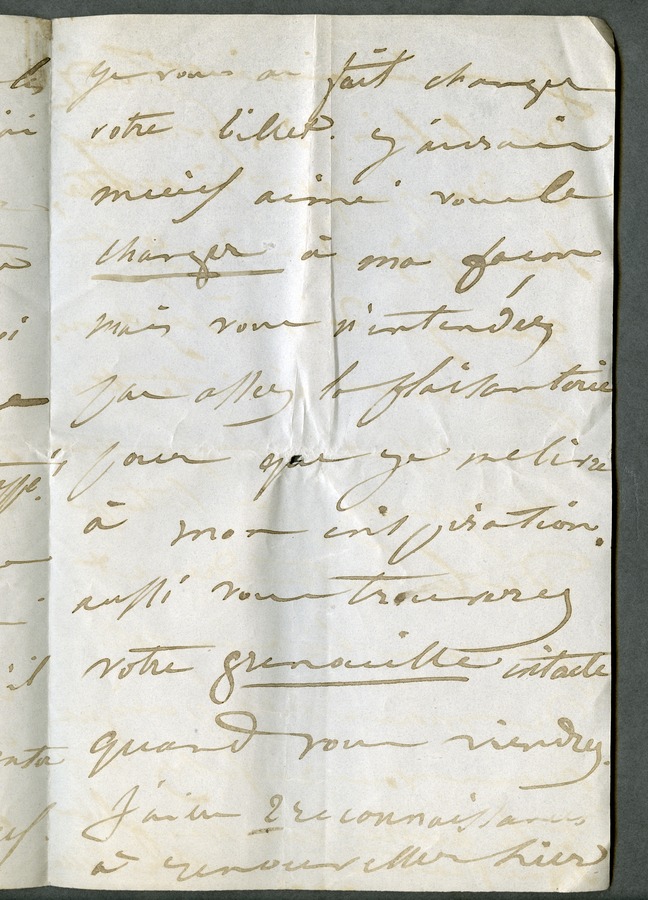 je vous ai fait changer
votre billet. j'aurais
mieux aimé vous le
changer à ma façon
mais vous n'entendez
pas assez la plaisanterie
pour que je me livre
à mon inspiration.
aussi vous trouverez
votre grenaille intacte
quand vous viendrez.
J'ai eu 2 reconnaissances
à renouveller hier